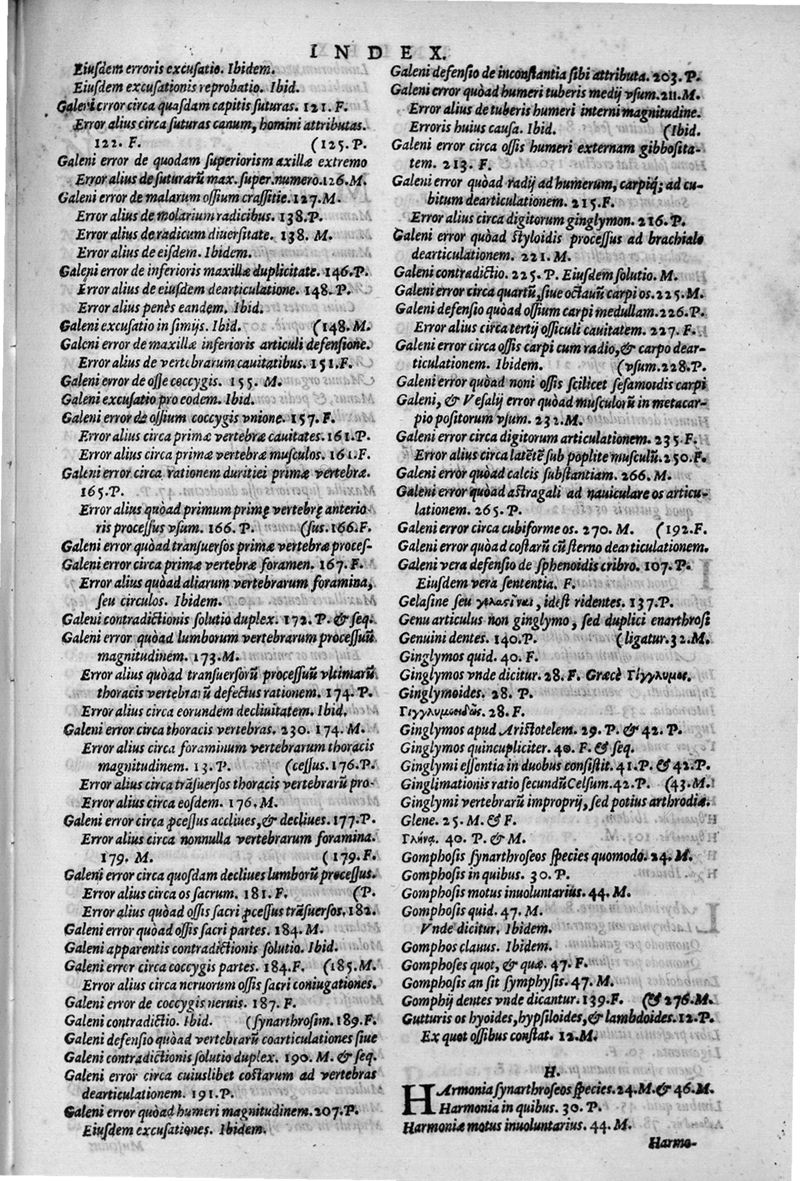 INDEX.
Eiusdem erroris excusatio. Ibidem.
Eiusdem excusationis reprobatio. Ibid.
Galeni error circa quasdam capitis suturas. 121. F.
Error alius circa suturas canum, homini attributas.
122. F. (125. P.
Galeni error de quodam superiorism axillæ extremo
Error alius de suturarũ max. super. numero. 126. M.
Galeni error de malarum ossium crassitie. 127. M.
Error alius de molarium radicibus. 138. P.
Error alius de radicum diuersitate. 138. M.
Error alius de eisdem. Ibidem.
Galeni error de inferioris maxillæ duplicitate. 146. P.
Error alius de eiusdem dearticulatione. 148. P.
Error alius penès eandem. Ibid.
Galeni excusatio in simijs. Ibid. (148. M.
Galeni error de maxillæ inferioris articuli defensione.
Error alius de vertebrarum cauitatibus. 151. F.
Galeni error de osse coccygis. 155. M.
Galeni excusatio pro eodem. Ibid.
Galeni error de ossium coccygis vnione. 157. F.
Error alius circa primæ vertebræ cauitates. 161. P.
Error alius circa primæ vertebræ musculos. 161. F.
Galeni error circa rationem duritiei primæ vertebræ.
165. P.
Error alius quòad primum primę vertebrę anterio
ris processus vsum. 166. P. (sus. 166. F.
Galeni error quòad transuersos primæ vertebræ proces-
Galeni error circa primæ vertebræ foramen. 167. F.
Error alius quòad aliarum vertebrarum foramina,
seu circulos. Ibidem.
Galeni contradictionis solutio duplex. 172. P. & seq.
Galeni error quòad lumborum vertebrarum processuũ
magnitudinem. 173. M.
Error alius quòad transuersorũ processuũ vltimarũ
thoracis vertebrarũ defectus rationem. 174. P.
Error alius circa eorundem decliuitatem. Ibid.
Galeni error circa thoracis vertebras. 230. 174. M.
Error alius circa foraminum vertebrarum thoracis
magnitudinem. 13. P. (cessus. 176. P.
Error alius circa trãsuersos thoracis vertebrarũ pro-
Error alius circa eosdem. 176. M.
Galeni error circa pcessus accliues, & decliues. 177. P.
Error alius circa nonnulla vertebrarum foramina.
179. M. (179. F.
Galeni error circa quosdam decliues lumborũ processus.
Error alius circa os sacrum. 181. F. (P.
Error alius quòad ossis sacri pcessus trãsuersos. 182.
Galeni error quòad ossis sacri partes. 184. M.
Galeni apparentis contradictionis solutio. Ibid.
Galeni error circa coccygis partes. 184. F. (185. M.
Error alius circa neruorum ossis sacri coniugationes.
Galeni error de coccygis neruis. 187. F.
Galeni contradictio. Ibid. (synarthrosim. 189. F.
Galeni defensio quòad vertebrarũ coarticulationes siue
Galeni contradictionis solutio duplex. 190. M. & seq.
Galeni error circa cuiuslibet costarum ad vertebras
dearticulationem. 191. P.
Galeni error quòad humeri magnitudinem. 207. P.
Eiusdem excusationes. Ibidem.
Galeni defensio de inconstantia sibi attributa. 203. P.
Galeni error quòad humeri tuberis medij vsum. 211. M.
Error alius de tuberis humeri interni magnitudine.
Erroris huius causa. Ibid. (Ibid.
Galeni error circa ossis humeri externam gibbosita-
tem. 213. F.
Galeni error quòad radij ad humerum, carpiq; ad cu-
bitum dearticulationem. 215. F.
Error alius circa digitorum ginglymon. 216. P.
Galeni error quòad styloidis processus ad brachiale
dearticulationem. 221. M.
Galeni contradictio. 225. P. Eiusdem solutio. M.
Galeni error circa quartũ, siue octauũ carpi os. 225. M.
Galeni defensio quòad ossium carpi medullam. 226. P.
Error alius circa tertij officuli cauitatem. 227. F.
Galeni error circa ossis carpi cum radio, & carpo dear-
ticulationem. Ibidem. (vsum. 228. P.
Galeni error quòad noni ossis scilicet sesamoidis carpi
Galeni, & Vesalij error quòad musculorũ in metacar-
pio positorum vsum. 232. M.
Galeni error circa digitorum articulationem. 235. F.
Error alius circa latẽtẽ sub poplite musculũ. 250. F.
Galeni error quòad calcis substantiam. 266. M.
Galeni error quòad astragali ad nauiculare os articu-
lationem. 265. P.
Galeni error circa cubiforme os. 270. M. (192. F.
Galeni error quòad costarũ cũ sterno dearticulationem.
Galeni vera defensio de sphenoidis cribro. 107. P.
Eiusdem vera sententia. F.
Gelasine seu γελασῖναι, idest ridentes. 137. P.
Genu articulus non ginglymo, sed duplici enarthrosi
Genuini dentes. 140. P. (ligatur. 32. M.
Ginglymos quid. 40. F.
Ginglymos vnde dicitur. 28. F. Græcè Γίγγλυμος.
Ginglymoides. 28. P.
Γιγγλυμοειδῶς. 28. F.
Ginglymos apud Aristotelem. 29. P. & 42. P.
Ginglymos quincupliciter. 40. F. & seq.
Ginglymi essentia in duobus consistit. 41. P. & 42. P.
Ginglimationis ratio secundũ Celsum. 42. P. (43. M.
Ginglymi vertebrarũ improprij, sed potius arthrodiæ.
Glene. 25. M. & F.
Γλήνη. 40. P. & M.
Gomphosis synarthroseos species quomodo. 24. M.
Gomphosis in quibus. 30. P.
Gomphosis motus inuoluntarius. 44. M.
Gomphosis quid. 47. M.
Vnde dicitur. Ibidem.
Gomphos clauus. Ibidem.
Gomphoses quot, & quæ. 47. F.
Gomphosis an sit symphysis. 47. M.
Gomphij dentes vnde dicantur. 139. F. (& 276. M.
Gutturis os hyoides, hypsiloides, & lambdoides. 12. P.
Ex quot ossibus constat. 12. M.
H.
HArmonia synarthroseos species. 24. M. & 46. M.
Harmonia in quibus. 30. P.
Harmoniæ motus inuoluntarius. 44. M.
Harmo-